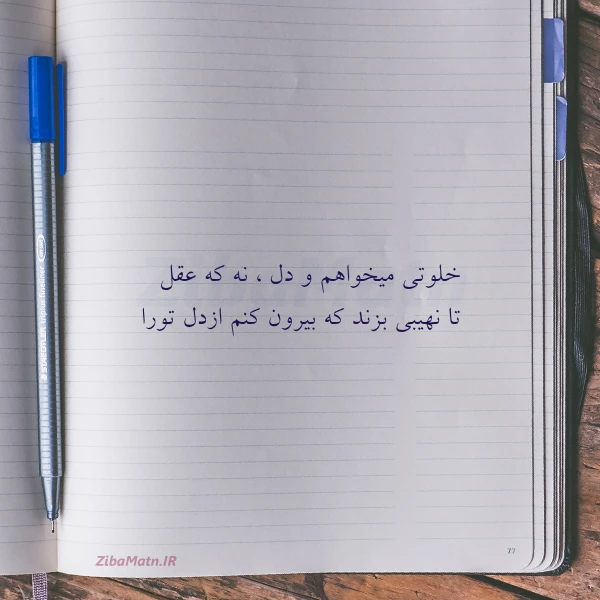 خلوتی میخواهم و دل ، نه که عقل
تا نهیبی بزند که بیرون کنم ازدل تورا
77
ZibaMatn.IR